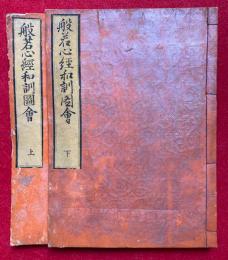 般若心經和訓圖會
下
般若心經和訓圖會
上